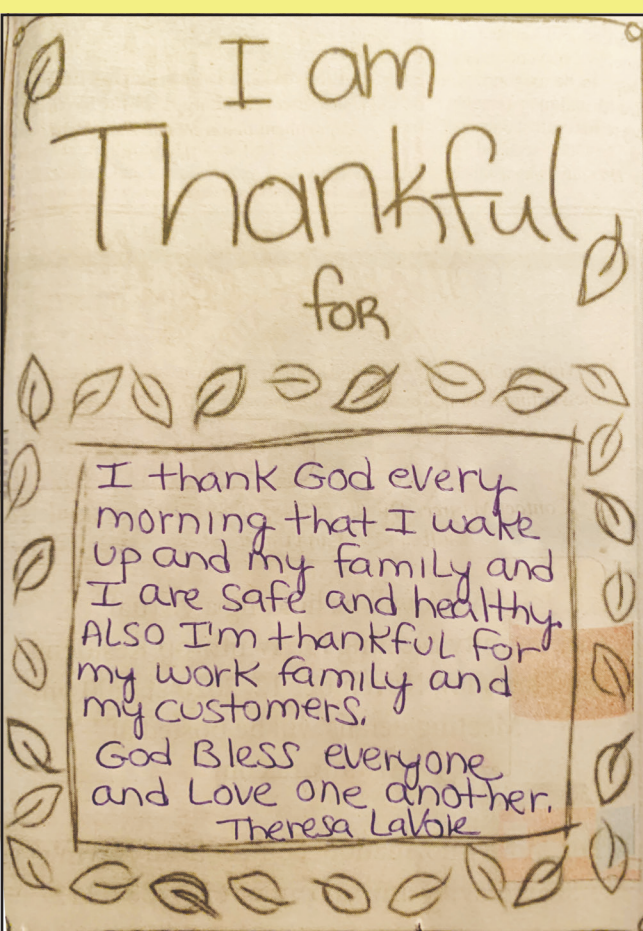 I am
Thankful
for
I thank God every
morning that I wake
up and my family and
I are safe and healthy.
ALSO I'm thankful for
my work family and
my customers.
God Bless everyone
and Love one another.
Theresa LaVoie